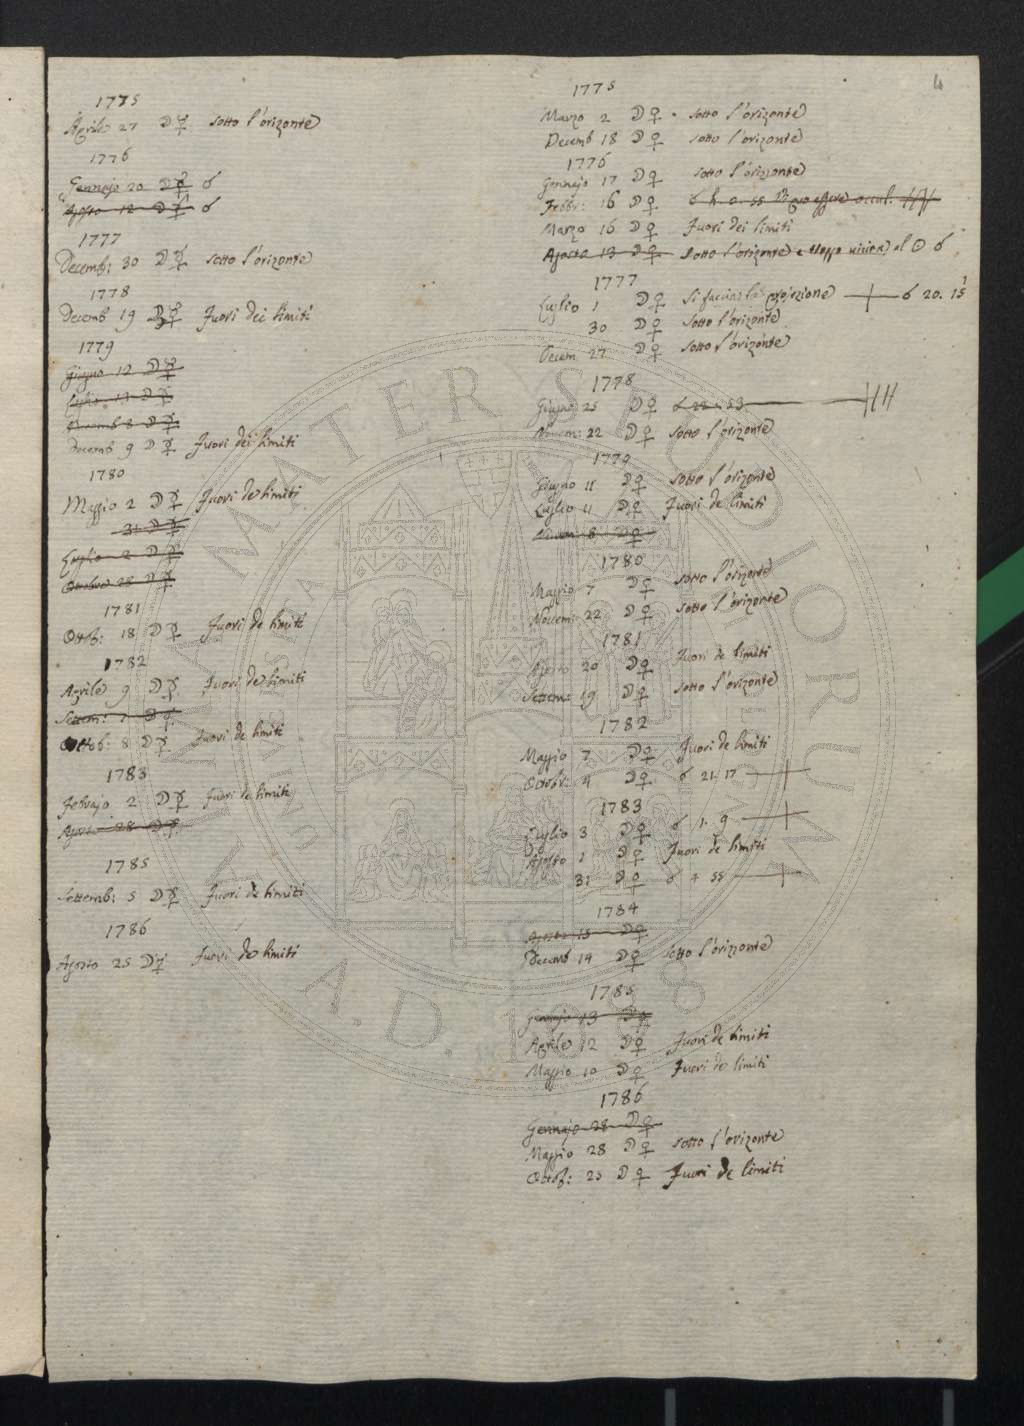 4
1775
Aprile 27 ☽ ☿ sotto l'orizonte
1776
Gennajo 20 ☽ ☿ ☌
Agosto 12 ☽ ☿ ☌
1777
Decemb: 30 ☽ ☿ sotto l'orizonte
1778
Decemb 19 ☽ ☿ Fuori dei limiti
1779
Giugno 12 ☽ ☿
Luglio 13 ☽ ☿
8 ☽ ☿
Decemb 9 ☽ ☿ Fuori dei limiti
1780
Maggio 2 ☽ ☿ Fuori de limiti
31 ☽ ☿
Luglio 2 ☽ ☿
Ottobre 28 ☽ ☿
1781
Ottob: 18 ☽ ☿ Fuori de limiti
1782
Aprile 9 ☽ ☿ Fuori de limiti
Settem: ☽ ☿
Ottob: 8 ☽ ☿ Fuori de limiti
1783
Febrajo 2 ☽ ☿ Fuori de limiti
Agosto 28 ☽ ☿
1785
Settemb: 5 ☽ ☿ Fuori de limiti
1786
Agosto 25 ☽ ☿ Fuori de limiti
1775
Marzo 2 ☽ ♀ sotto l'orizonte
Decemb 18 ☽ ♀ sotto l'orizonte
1776
Gennajo 17 ☽ ♀ sotto l'orizonte
Febbr: 16 ☽ ♀ ☌ h. 0. 55 può essere occul.
Marzo 16 ☽ ♀ Fuori dei limiti
Agosto 13 ☽ ♀ sotto l'orizonte e troppo vicina al ☉ ☌
1777
Luglio 1 ☽ ♀ Si faccia la projezione ☌ 20. 15
30 ☽ ♀ sotto l'orizonte
Decem. 27 ☽ ♀ sotto l'orizonte
1778
Giugno 25 ☽ ♀ ☌ 22. 53
Novem: 22 ☽ ♀ sotto l'orizonte
1779
Giugno 11 ☽ ♀ sotto l'orizonte
Luglio 11 ☽ ♀ Fuori de limiti
8 ☽ ♀
1780
Maggio 7 ☽ ♀ sotto l'orizonte
Novem: 22 ☽ ♀ sotto l'orizonte
1781
Agosto 20 ☽ ♀ Fuori de limiti
Settem: 19 ☽ ♀ sotto l'orizonte
1782
Maggio 7 ☽ ♀ Fuori de limiti
Ottobr: 4 ☽ ♀ ☌ 21. 17
1783
Luglio 3 ☽ ♀ ☌ 1. 9
Agosto 1 ☽ ♀ Fuori de limiti
31 ☽ ♀ ☌ 4 55
1784
Agosto 15 ☽ ♀
Decemb 14 ☽ ♀ sotto l'orizonte
1785
Gennajo 13 ☽ ♀
Aprile 12 ☽ ♀ Fuori de limiti
Maggio 10 ☽ ♀ Fuori de limiti
1786
Gennajo 28 ☽ ♀
Maggio 28 ☽ ♀ sotto l'orizonte
Ottob: 25 ☽ ♀ Fuori de limiti
ALMA MATER STUDIORUM
A.D. 1088